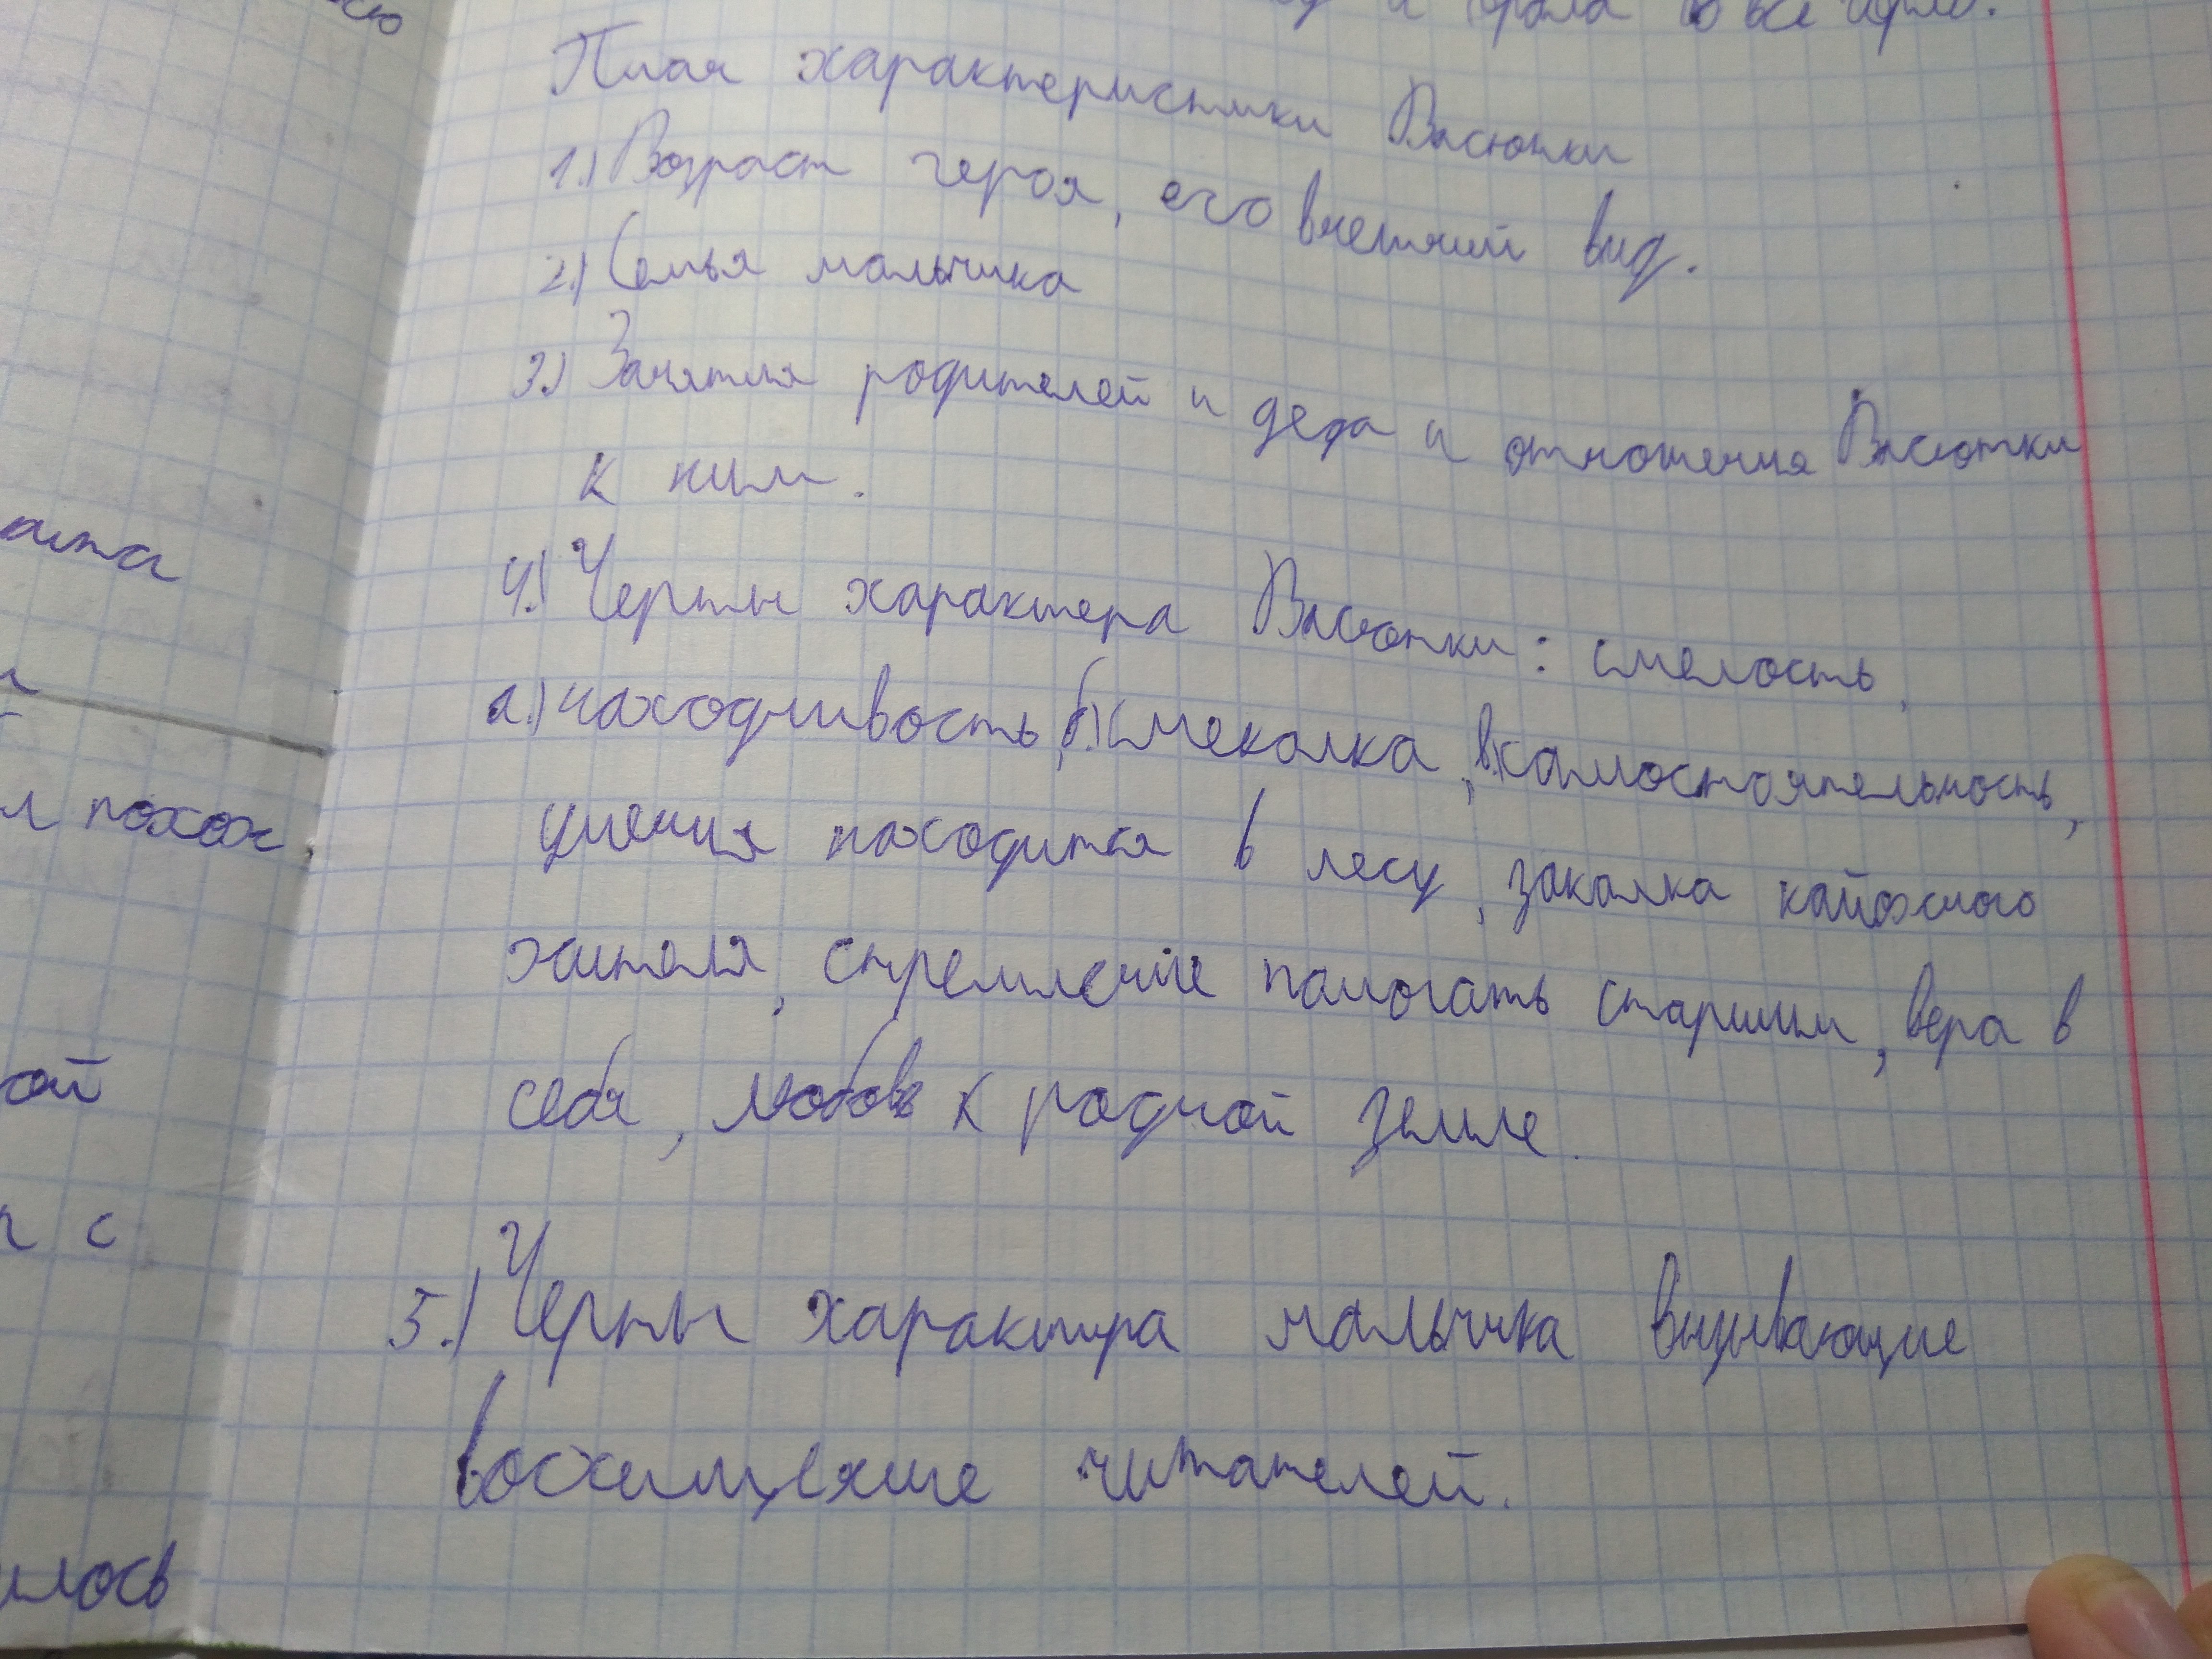 План характеристики Васютки
1.) Возраст героя, его внешний вид.
2.) Семья мальчика
3.) Занятия родителей и деда и отношения Васютки
к ним.
4.) Черты характера Васютки: смелость,
а.) находчивость, б.) смекалка, в.) самостоятельность,
умения находится в лесу, закалка кайожного
жителя, стремление помогать старшим, вера в
себя, любовь к родной земле.
5.) Черты характера мальчика вызывающие
восхищение читателей.
ой
с
похож
илось